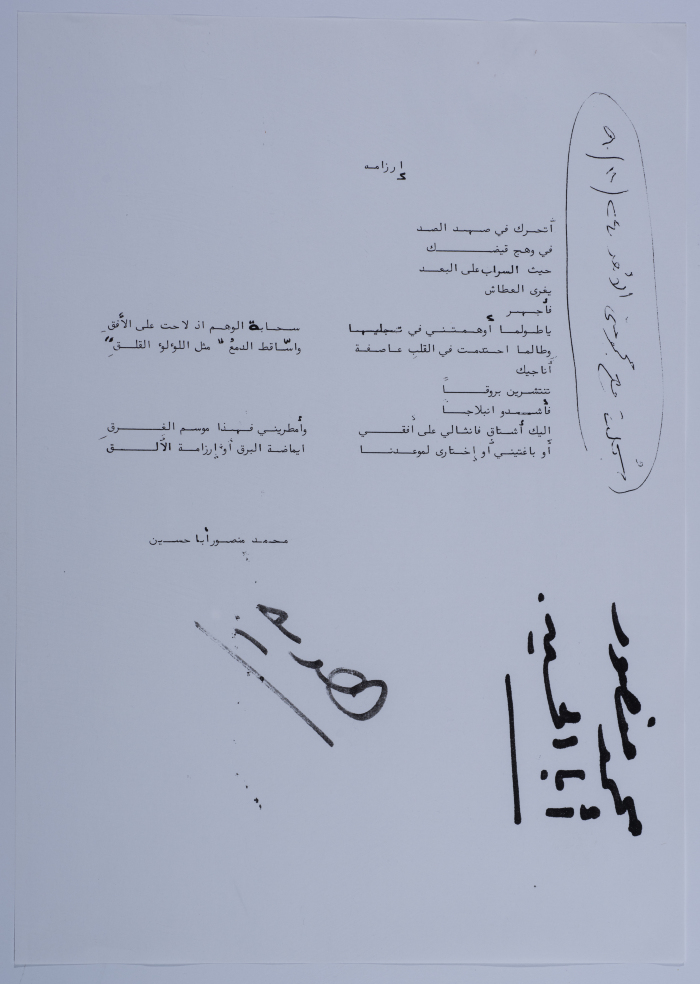 إرزامه
أتحرك في صهد الصد
في وهج قيضـــك
حيث السراب على البعد
يغرى العطاش
فأجهر
ياطولما أوهمتني في تجليها سحابة الوهم اذ لاحت على الأفق
وطالما احتدمت في القلب عاصفة واسّاقط الدمعُ " مثل اللؤلؤ القلق"
أناجيك
تنتشرين بروقـــاً
فأشـــدو انبلاجـــاً
اليك أشتاق فانثالي على أفقـــي وأمطريني فهذا موسم الغـــرق
أو باغتيني أو إختارى لموعدنـــا ايماضة البرق أو إرزامة الألـــق
محمد منصور أبا حسين
محمد منصور
أبا الحسين